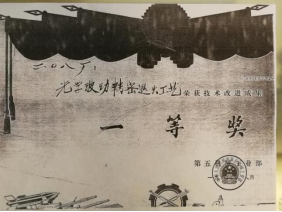 二〇八厂:
光学被动精密退火工艺荣获技术改进成果
一等奖
第五 业部
月